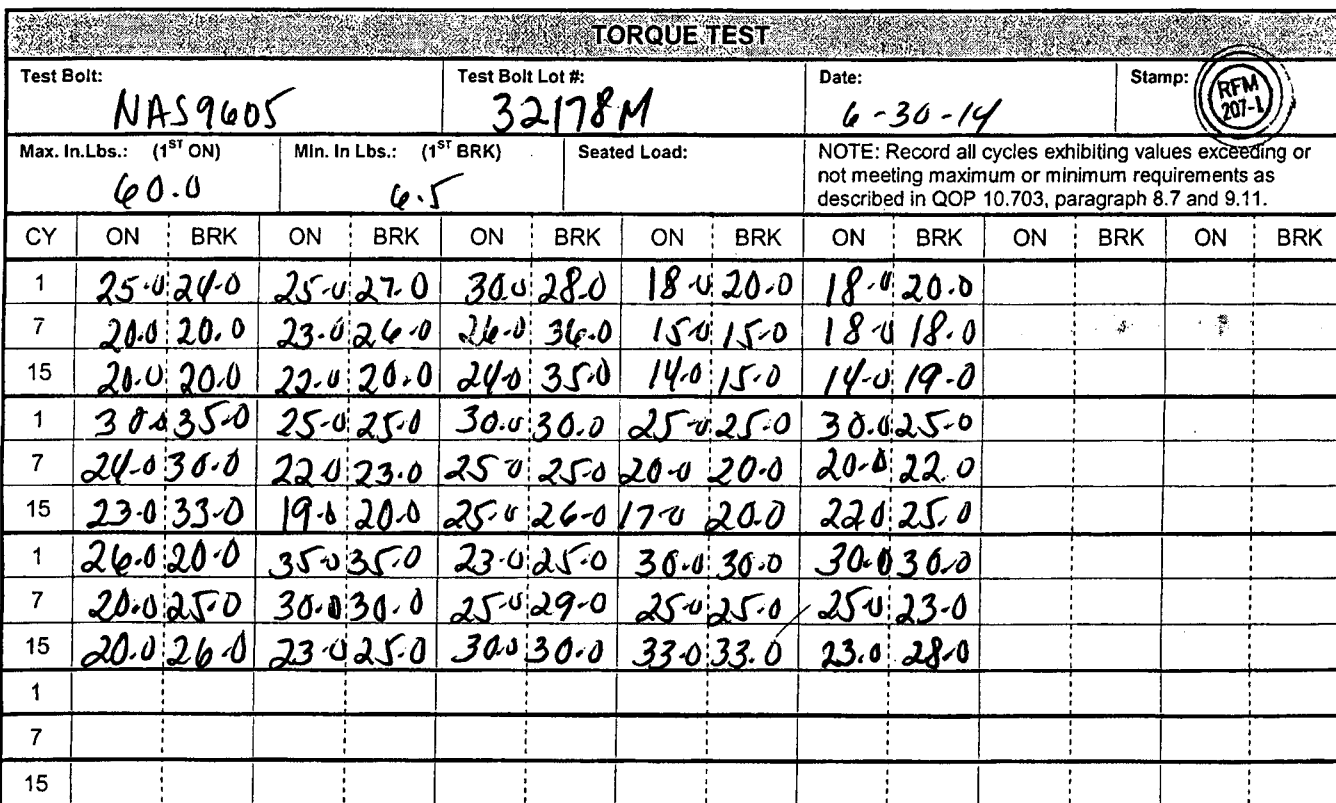 TORQUE TEST
Test Bolt: Test Bolt Lot #: Date: Stamp:
NAS9605 32178M 6-30-14 RFM 207-1
Max. In.Lbs.: (1ST ON) Min. In Lbs.: (1ST BRK) Seated Load: NOTE: Record all cycles exhibiting values exceeding or
60.0 6.5 not meeting maximum or minimum requirements as
described in QOP 10.703, paragraph 8.7 and 9.11.
CY ON BRK ON BRK ON BRK ON BRK ON BRK ON BRK ON BRK
1 25.0 24.0 25.0 27.0 30.0 28.0 18.0 20.0 18.0 20.0
7 20.0 20.0 23.0 26.0 26.0 36.0 15.0 15.0 18.0 18.0
15 20.0 20.0 22.0 20.0 24.0 35.0 14.0 15.0 14.0 19.0
1 30.0 35.0 25.0 25.0 30.0 30.0 25.0 25.0 30.0 25.0
7 24.0 30.0 22.0 23.0 25.0 25.0 20.0 20.0 20.0 22.0
15 23.0 33.0 19.0 20.0 25.0 26.0 17.0 20.0 22.0 25.0
1 26.0 20.0 35.0 35.0 23.0 25.0 30.0 30.0 30.0 30.0
7 20.0 25.0 30.0 30.0 25.0 29.0 25.0 25.0 25.0 23.0
15 20.0 26.0 23.0 25.0 30.0 30.0 33.0 33.0 23.0 28.0
1
7
15